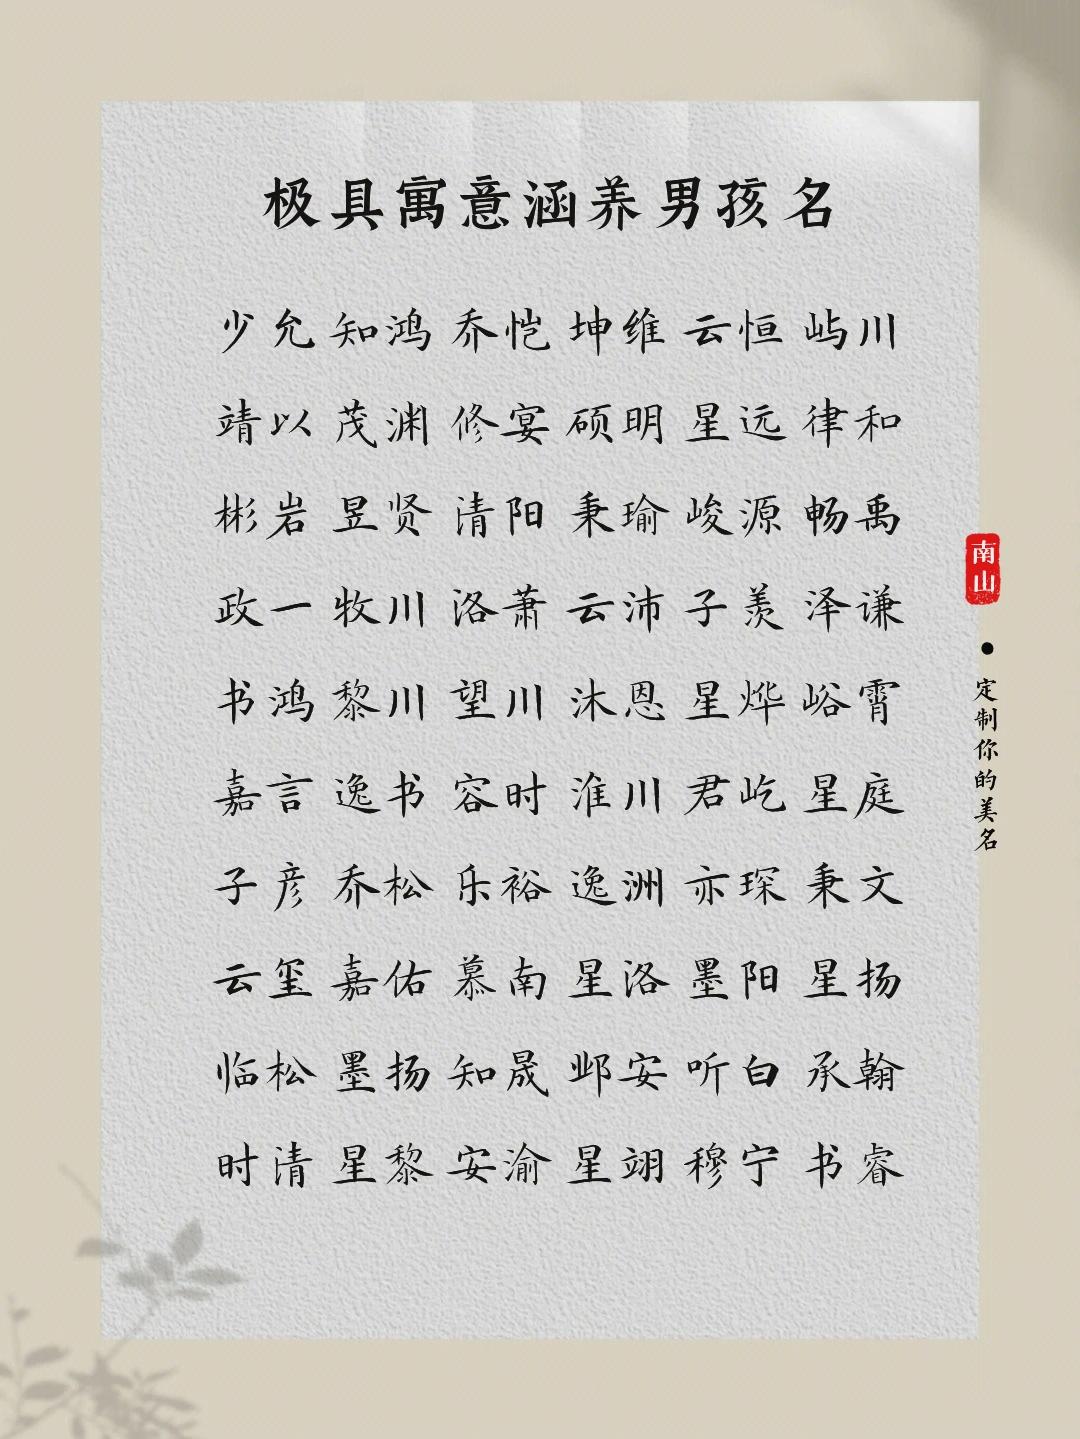 极具寓意涵养男孩名
少允 知鸿 乔恺 坤维 云恒 屿川
靖以 茂渊 修宴 硕明 星远 律和
彬岩 昱贤 清阳 秉瑜 峻源 畅禹
政一 牧川 洛萧 云沛 子羡 泽谦
书鸿 黎川 望川 沐恩 星烨 峪霄
嘉言 逸书 容时 淮川 君屹 星庭
子彦 乔松 乐裕 逸洲 亦琛 秉文
云玺 嘉佑 慕南 星洛 墨阳 星扬
临松 墨扬 知晟 邺安 听白 承翰
时清 星黎 安渝 星翊 穆宁 书睿
南山
•
定制你的美名